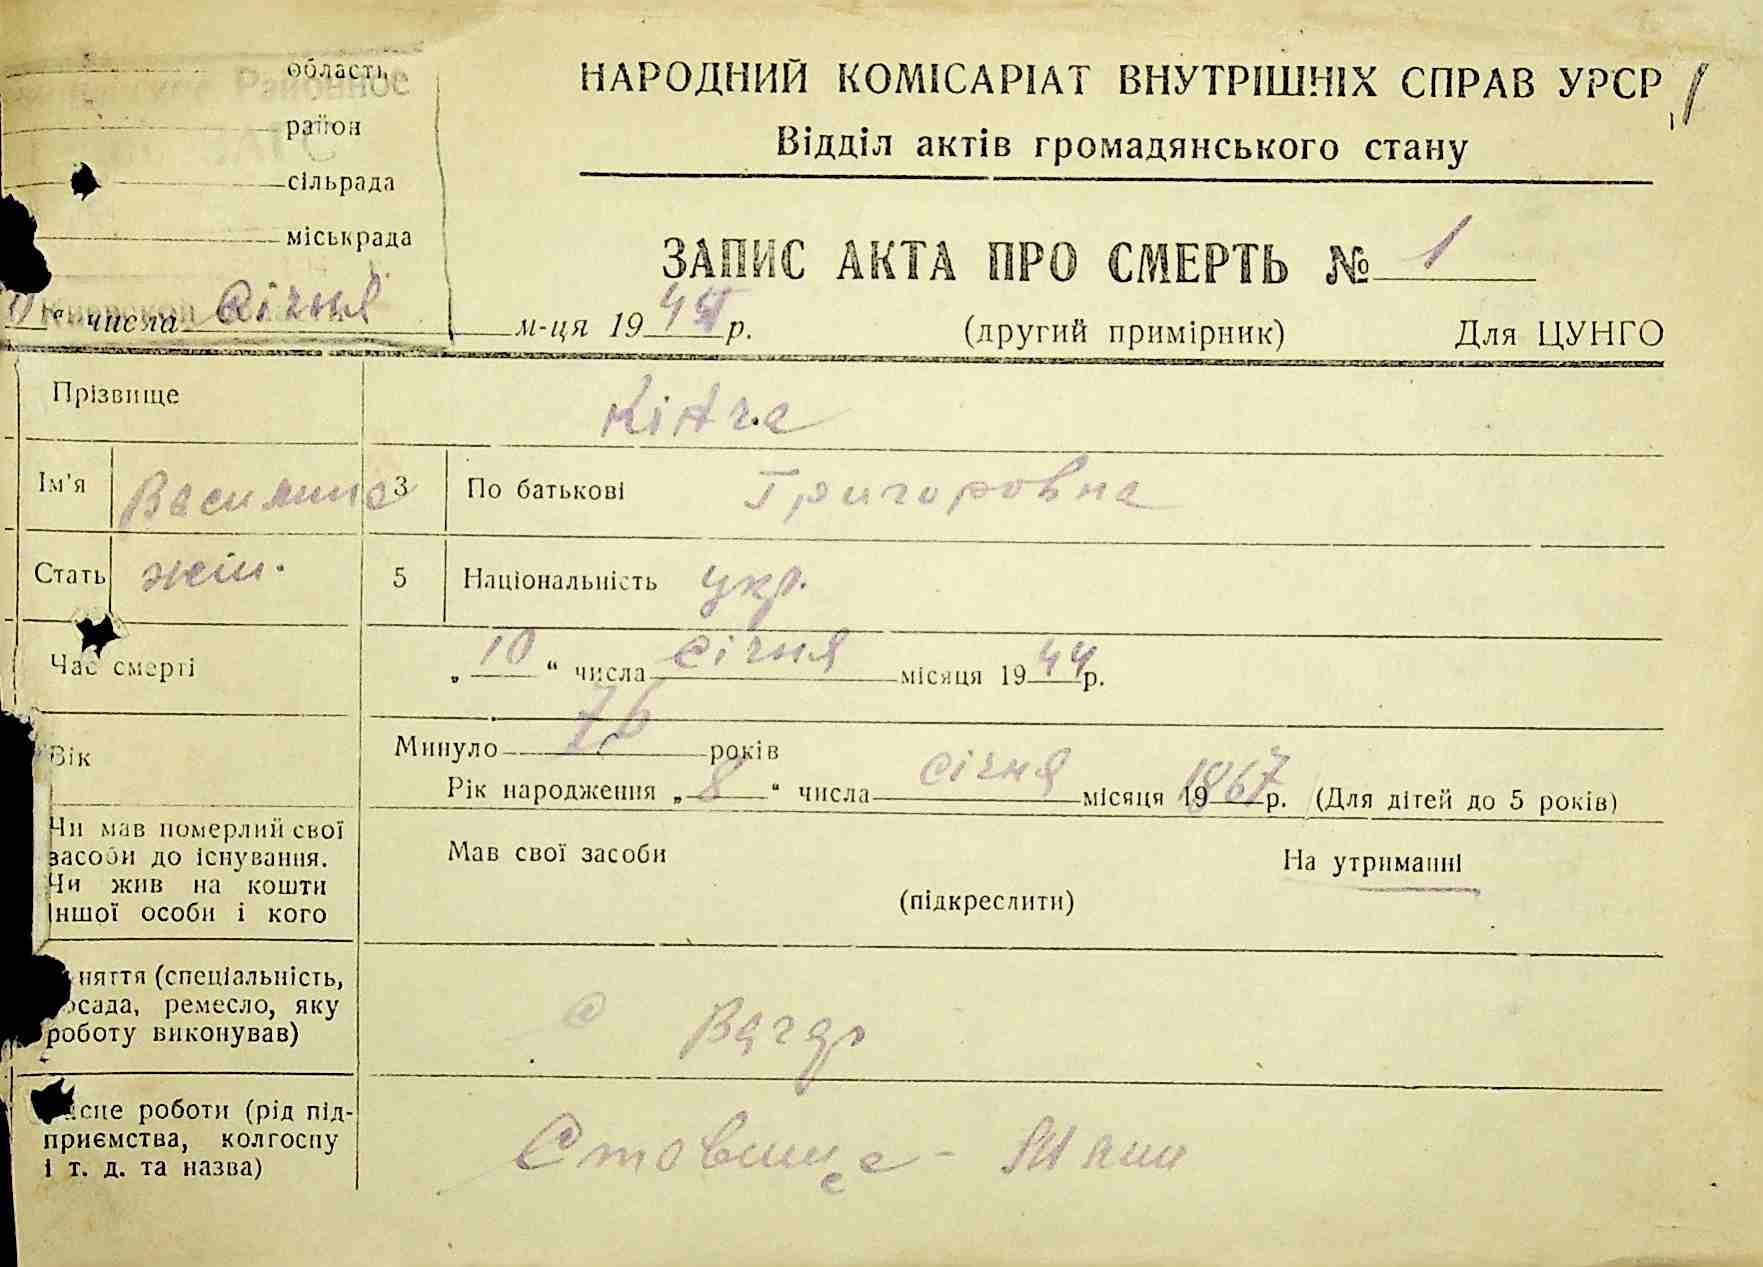 область
Районное
район
ЗАГС
сільрада
міськрада
НАРОДНИЙ КОМІСАРІАТ ВНУТРІШНІХ СПРАВ УРСР
Відділ актів громадянського стану
ЗАПИС АКТА ПРО СМЕРТЬ № 1
“ числа січня м-ця 1944 р.
(другий примірник) Для ЦУНГО
Прізвище
Ім'я Василина 3 По батькові Григоровна
Стать жін. 5 Національність укр.
Час смерті „ 10 “ числа січня місяця 1944 р.
Вік Минуло 76 років
Рік народження „ 8 “ числа січня місяця 1867 р. (Для дітей до 5 років)
Чи мав померлий свої
засоби до існування.
Чи жив на кошти
іншої особи і кого
Мав свої засоби На утриманні
(підкреслити)
няття (спеціальність,
осада, ремесло, яку
роботу виконував)
сце роботи (рід під-
приємства, колгоспу
і т. д. та назва)